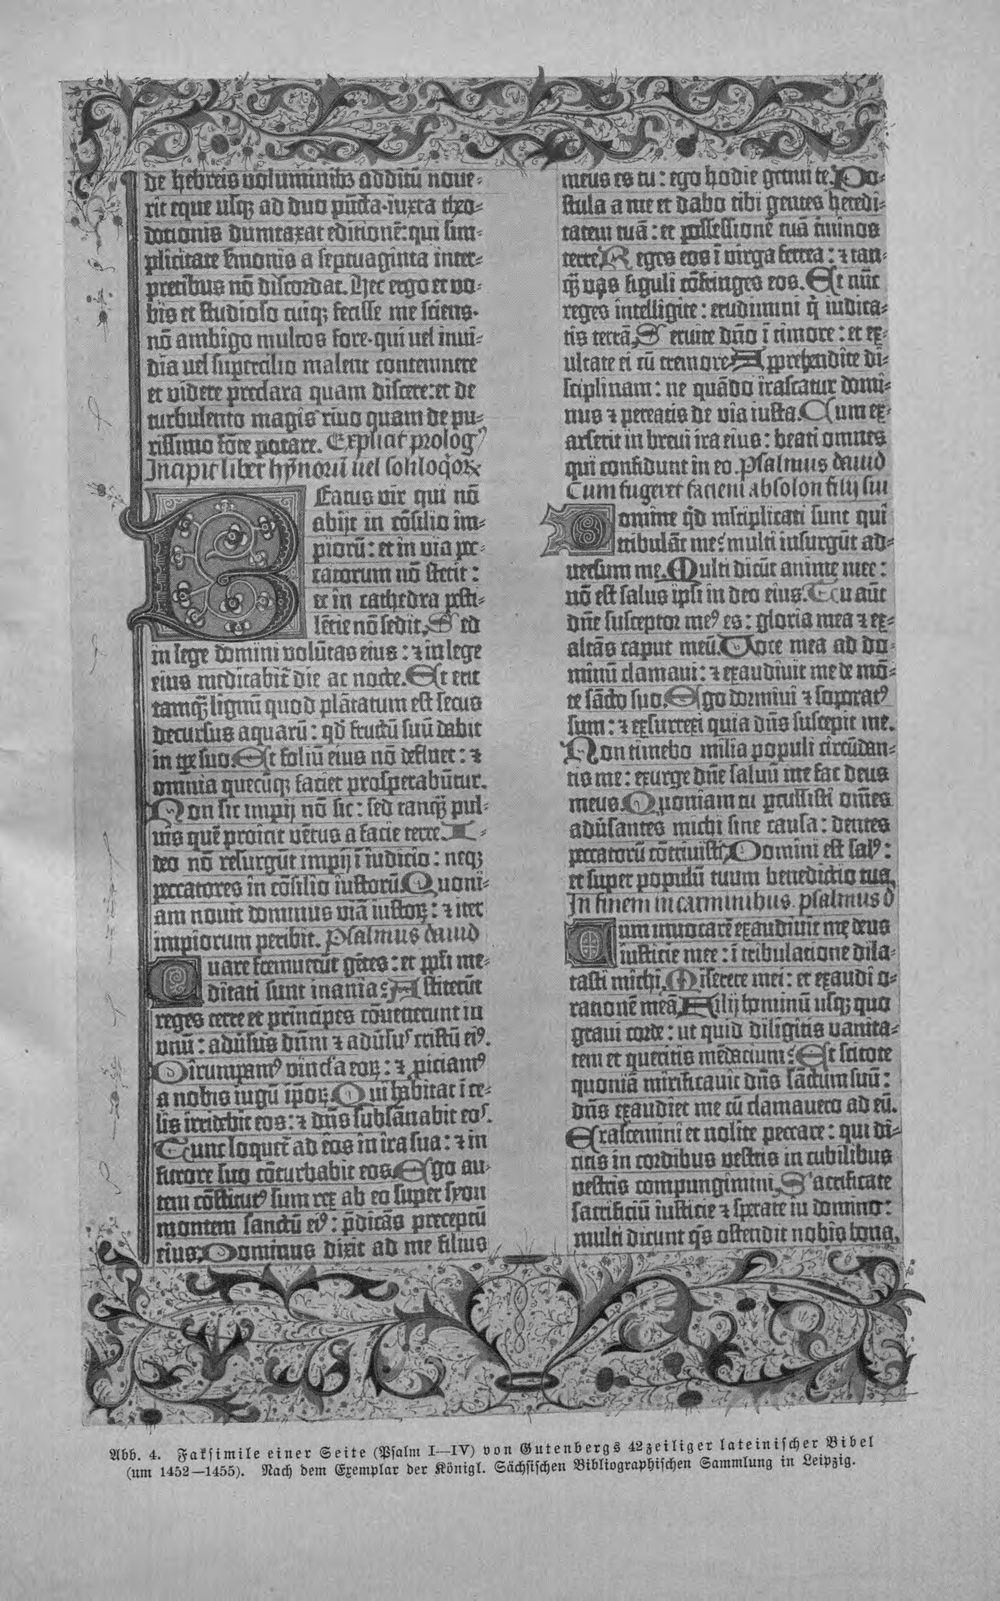 de hebreis voluminibꝫ additū noue⸗
rit eque usqꝫ ad duo pūcta·iuxta theo⸗
dotionis dumtaxat editionē: qui sim⸗
plicitate s̄monis a septuaginta inter⸗
pretibus nō discordat. Hec ergo et vo⸗
bis et studioso cuiqꝫ fecisse me sciens·
nō ambigo multos fore·qui uel invi⸗
dia uel supercilio malent contemnere
et videre preclara quam discere: et de
turbulento magis rivo quam de pu⸗
rissimo fōte potare. Explicit prologꝰ
Incipit liber hymnorū uel soliloqiorꝝ
Beatus vir qui nō
abijt in cōsilio im⸗
piorū: et in via pec⸗
catorum nō stetit:
et in cathedra pesti⸗
lētie nō sedit. Sed
in lege domini volūtas eius: ⁊ in lege
eius meditabit̄ die ac nocte. Et erit
tamqꝫ lignū quod plātatum est secus
decursus aquarū: qd̄ fructū suū dabit
in tꝑe suo. Et foliū eius nō defluet: ⁊
omnia quecūqꝫ faciet prosperabūtur.
Non sic impij nō sic: sed tanqꝫ pul⸗
vis quē proicit vētus a facie terre. I⸗
deo nō resurgūt impij ī iudicio: neqꝫ
peccatores in cōsilio iustorū. Quoni⸗
am novit dominus viā iustoꝝ: ⁊ iter
impiorum peribit. Psalmus david
Quare fremuerūt gētes: et ppli me⸗
ditati sunt inania? Astiterūt
reges terre et principes cōvenerunt in
unū: adūsus dn̄m ⁊ adūsus cristū eiꝰ.
Dirumpamꝰ vincla eoꝝ: ⁊ ꝓiciamꝰ
a nobis iugū ipōꝝ. Qui habitat ī ce⸗
lis irridebit eos: ⁊ dn̄s subsānabit eos.
Tunc loquet̄ ad eos in ira sua: ⁊ in
furore suo cōturbabit eos. Ego au⸗
tem cōstitutꝰ sum rex ab eo super syon
montem sanctū eiꝰ: p̄dicās preceptū
eius. Dominus dixit ad me filius
meus es tu: ego hodie genui te. Po⸗
stula a me et dabo tibi gentes heredi⸗
tatem tuā: et possessionē tuā t̄minos
terre. Reges eos ī virga ferrea: ⁊ tan⸗
qꝫ vas figuli cōfringes eos. Et nūc
reges intelligite: erudimini q̄ iudica⸗
tis terrā. Servite dn̄o ī timore: et ex⸗
ultate ei cū tremore. Apprehendite di⸗
sciplinam: ne quādo irascatur domi⸗
nus ⁊ pereatis de via iusta. Cum ex⸗
arserit in brevi ira eius: beati omnes
qui confidunt in eo. Psalmus david
Cum fugeret faciem absolon filij sui
Domine qd̄ mltiplicati sunt qui
tribulāt me? multi insurgūt ad⸗
versum me. Multi dicūt anime mee:
nō est salus ipsi in deo eius. Tu aūt
dn̄e susceptor meꝰ es: gloria mea ⁊ ex⸗
altās caput meū. Voce mea ad do⸗
minū clamavi: ⁊ exaudivit me de mō⸗
te sācto suo. Ego dormivi ⁊ soporatꝰ
sum: ⁊ exsurrexi quia dn̄s suscepit me.
Non timebo milia populi circūdan⸗
tis me: exurge dn̄e salvū me fac deus
meus. Quoniam tu ꝑcussisti om̄es
adūsantes michi sine causa: dentes
peccatorū cōtrivisti. Domini est salꝰ:
et super populū tuum benedictio tua.
In finem in carminibus psalmus d
Cum invocarē exaudivit me deus
iusticie mee: ī tribulatione dila⸗
tasti michi. Miserere mei: et exaudi o⸗
rationē meā. Filij hominū usqꝫ quo
gravi corde: ut quid diligitis vanita⸗
tem et queritis mēdacium? Et scitote
quoniā mirificavit dn̄s sāctum suū:
dn̄s exaudiet me cū clamavero ad eū.
Irascimini et nolite peccare: qui di⸗
citis in cordibus vestris in cubilibus
vestris compungimini. Sacrificate
sacrificiū iusticie ⁊ sperate in domino:
multi dicunt qs̄ ostendit nobis bona.
Abb. 4. Faksimile einer Seite (Psalm I—IV) von Gutenbergs 42zeiliger lateinischer Bibel
(um 1452—1455). Nach dem Exemplar der Königl. Sächsischen Bibliographischen Sammlung in Leipzig.